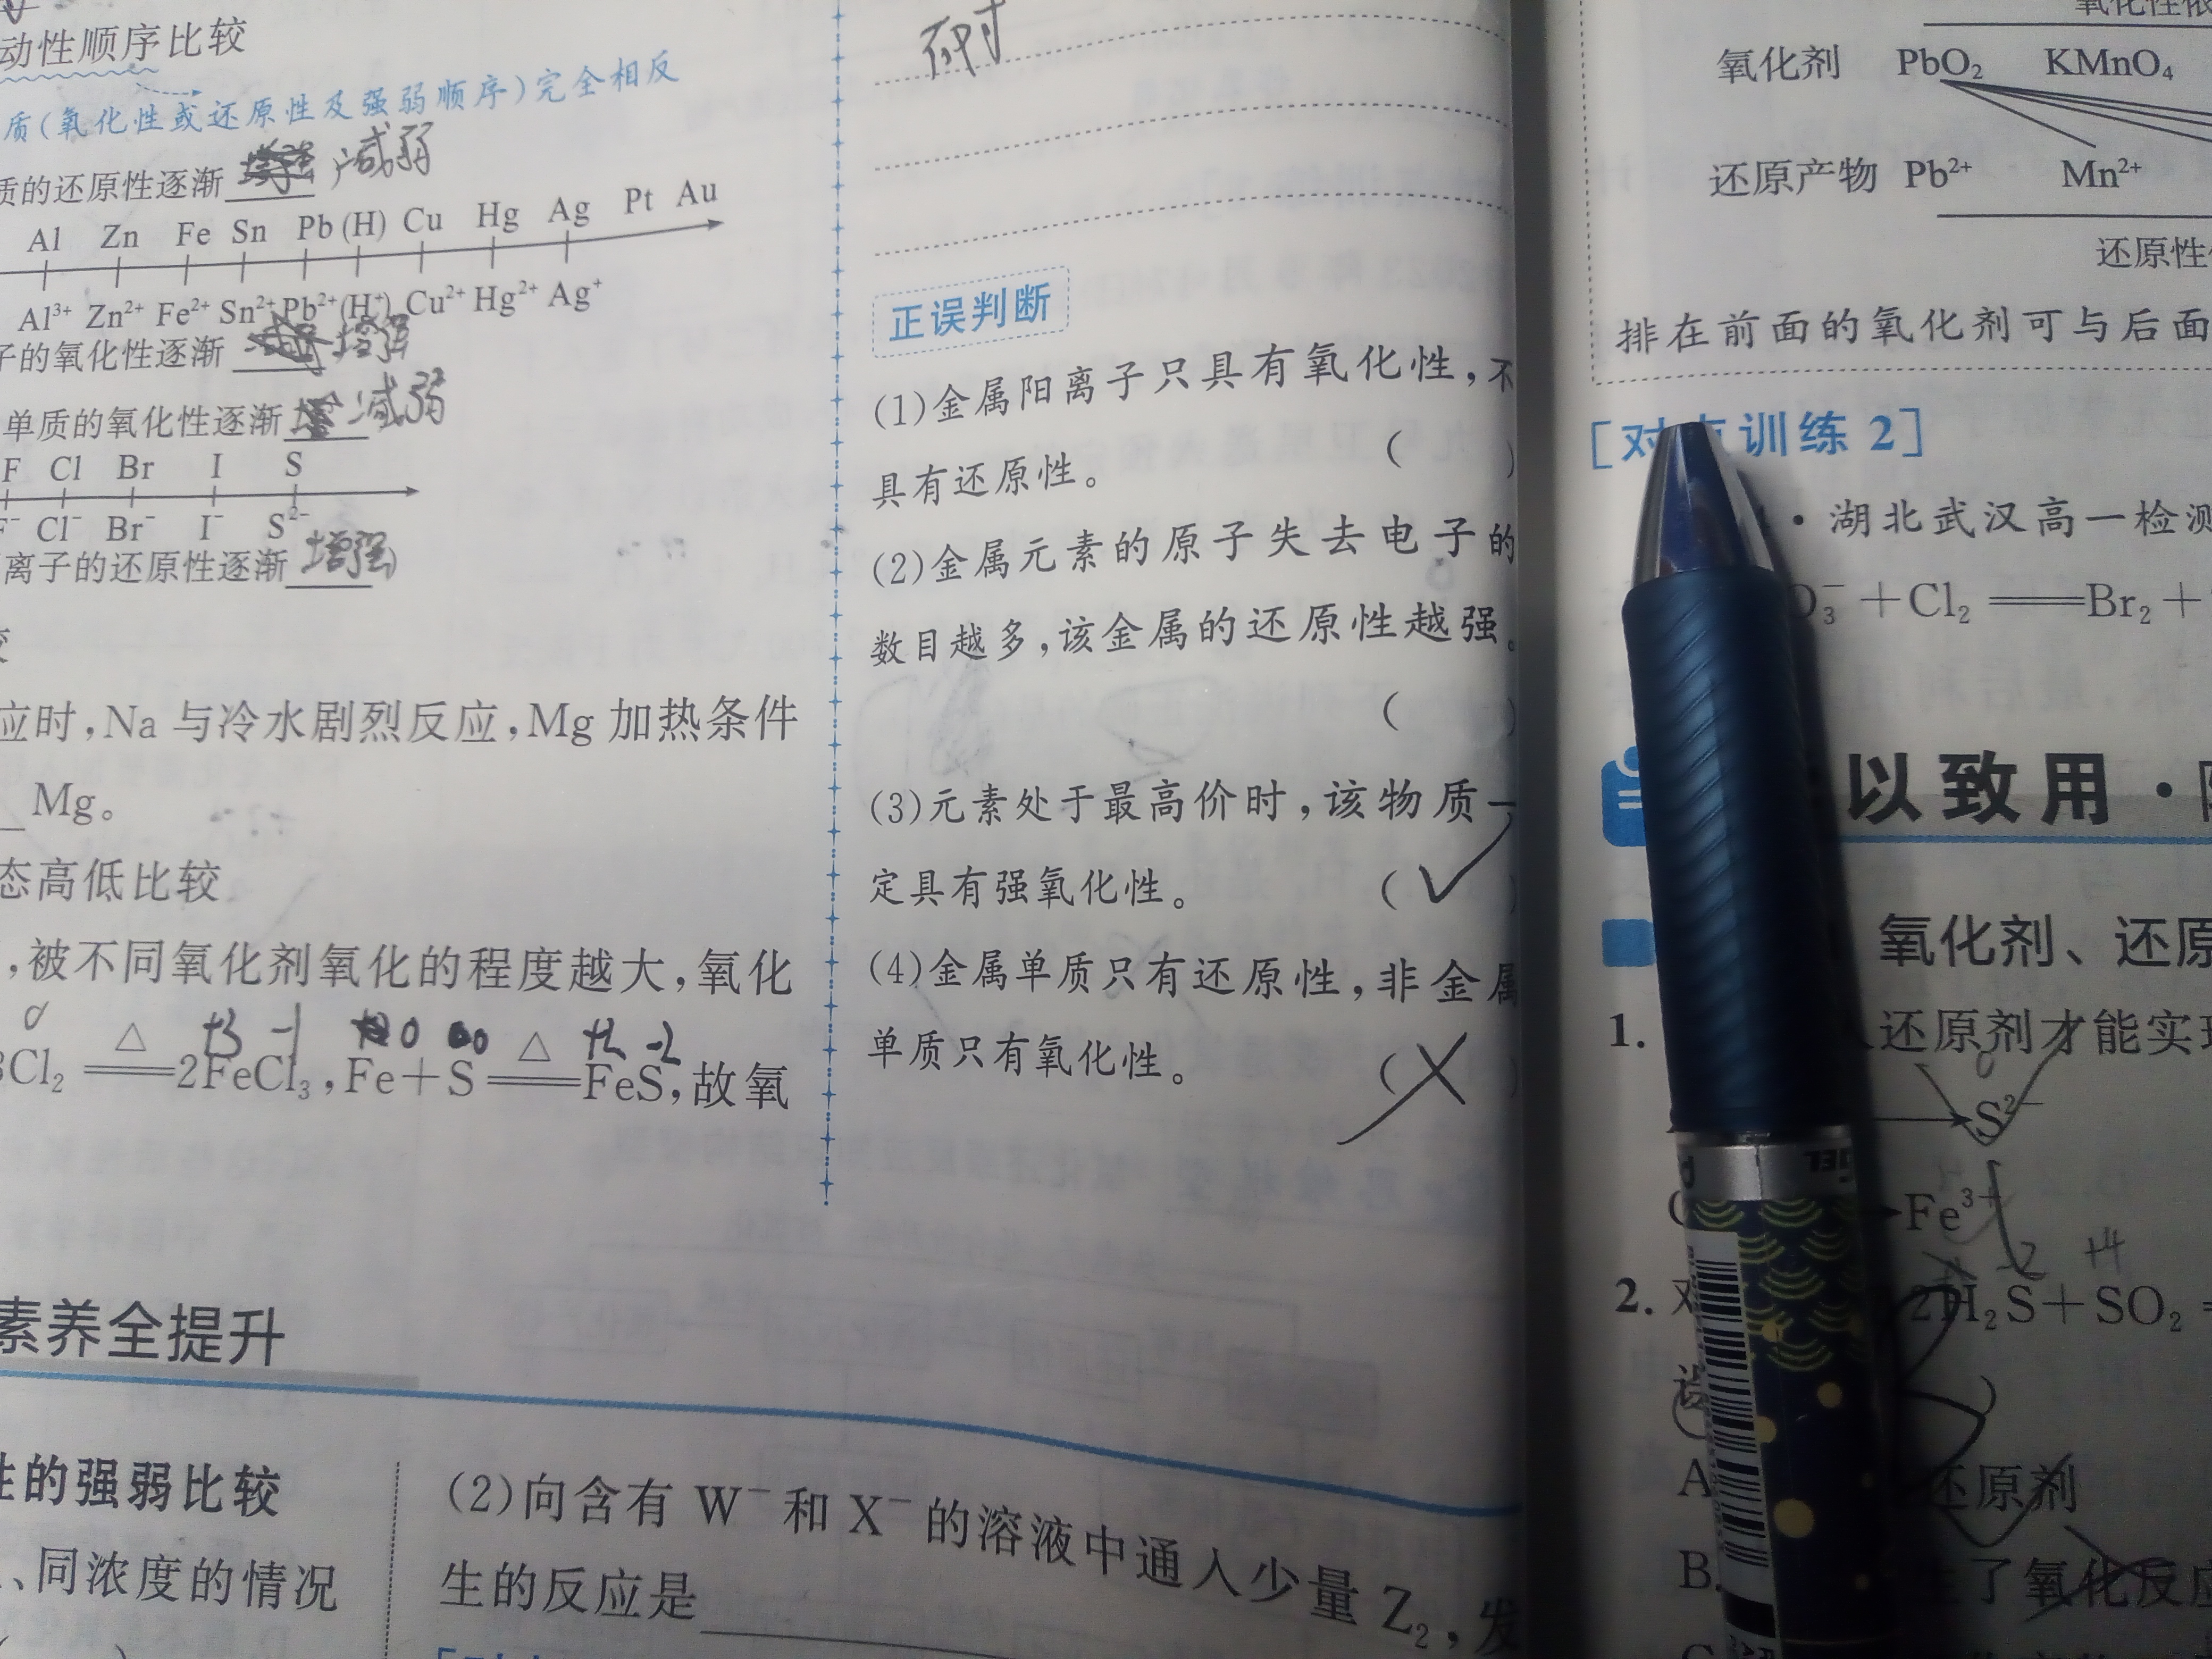 动性顺序比较
质(氧化性或还原性及强弱顺序)完全相反
质的还原性逐渐 减弱
Al Zn Fe Sn Pb (H) Cu Hg Ag Pt Au
Al³⁺ Zn²⁺ Fe²⁺ Sn²⁺ Pb²⁺ (H⁺) Cu²⁺ Hg²⁺ Ag⁺
子的氧化性逐渐 增强
单质的氧化性逐渐 减弱
F Cl Br I S
F⁻ Cl⁻ Br⁻ I⁻ S²⁻
离子的还原性逐渐 增强
应时,Na 与冷水剧烈反应,Mg 加热条件
Mg。
态高低比较
,被不同氧化剂氧化的程度越大,氧化
0 +3 -1 0 0 +2 -2
3Cl₂ ══△══ 2FeCl₃,Fe+S ══△══ FeS,故氧
素养全提升
性的强弱比较
、同浓度的情况
正误判断
(1)金属阳离子只具有氧化性,不
具有还原性。 ( )
(2)金属元素的原子失去电子的
数目越多,该金属的还原性越强。
( )
(3)元素处于最高价时,该物质一
定具有强氧化性。 (✓)
(4)金属单质只有还原性,非金属
单质只有氧化性。 (×)
(2)向含有 W⁻ 和 X⁻ 的溶液中通入少量 Z₂,发
生的反应是
氧化剂 PbO₂ KMnO₄
还原产物 Pb²⁺ Mn²⁺
还原性
排在前面的氧化剂可与后面
[对点训练 2]
·湖北武汉高一检测
O₃⁻+Cl₂══Br₂+
以致用·
氧化剂、还原
1. 还原剂才能实现
0
S²⁻
Fe³⁺
-2 +4
2. 2H₂S+SO₂
A 还原剂
B. 了氧化反应